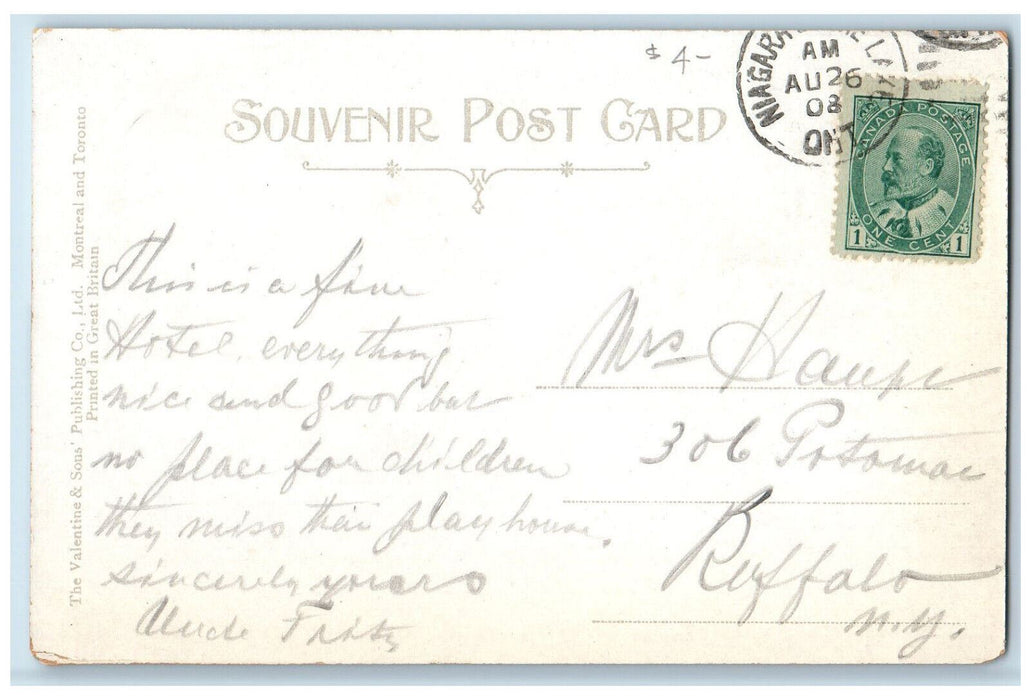 $4-
SOUVENIR POST CARD
NIAGARA LAKE
AM
AU 26
08
ONT
CANADA POSTAGE
1 ONE CENT 1
The Valentine & Sons' Publishing Co., Ltd. Montreal and Toronto
Printed in Great Britain
This is a fine
Hotel, everything
nice and good but
no place for children
they miss their play house.
sincerely yours
Uncle Fritz
Mrs Haupt
306 Potomac
Buffalo
N.Y.